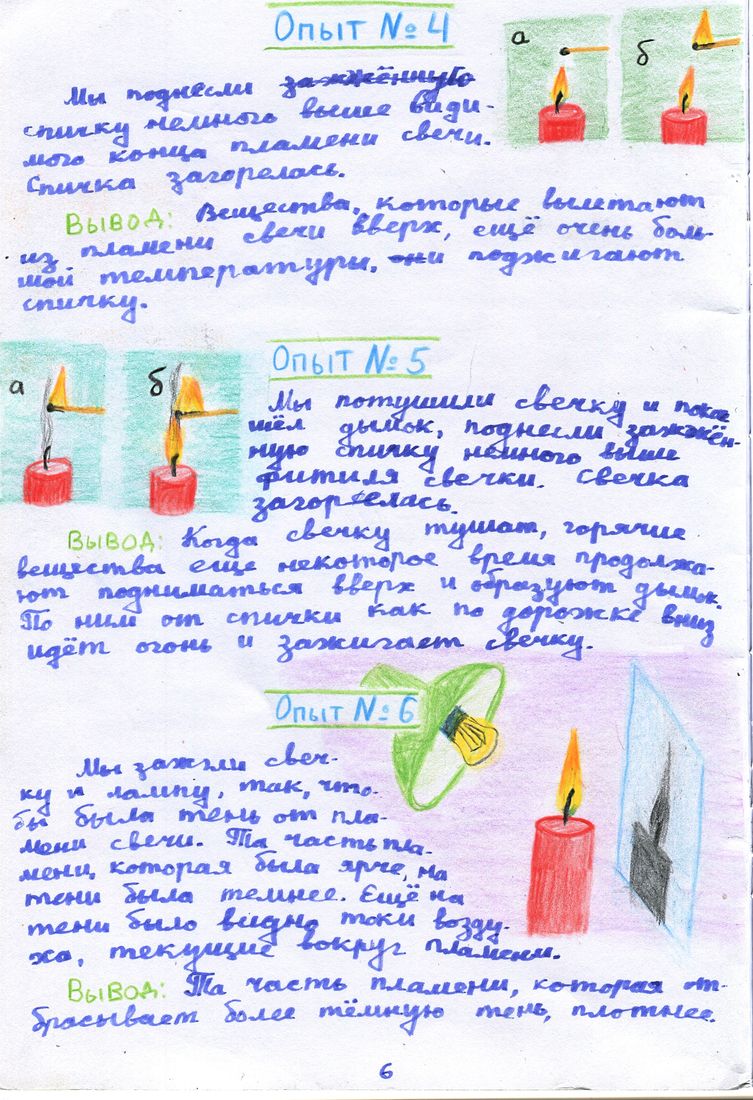 Опыт № 4
а
б
Мы поднесли зажжённую
спичку немного выше види-
мого конца пламени свечи.
Спичка загорелась.
Вывод: Вещества, которые вылетают
из пламени свечи вверх, ещё очень боль-
шой температуры, они поджигают
спичку.
Опыт № 5
а
б
Мы потушили свечку и пока
шёл дымок, поднесли зажжён-
ную спичку немного выше
фитиля свечки. Свечка
загорелась.
Вывод: Когда свечку тушат, горячие
вещества еще некоторое время продолжа-
ют подниматься вверх и образуют дымок.
По ним от спички как по дорожке вниз
идёт огонь и зажигает свечку.
Опыт № 6
Мы зажгли свеч-
ку и лампу, так, что-
бы была тень от пла-
мени свечи. Та часть пла-
мени, которая была ярче, на
тени была темнее. Ещё на
тени было видно токи возду-
ха, текущие вокруг пламени.
Вывод: Та часть пламени, которая от-
брасывает более тёмную тень, плотнее.
6